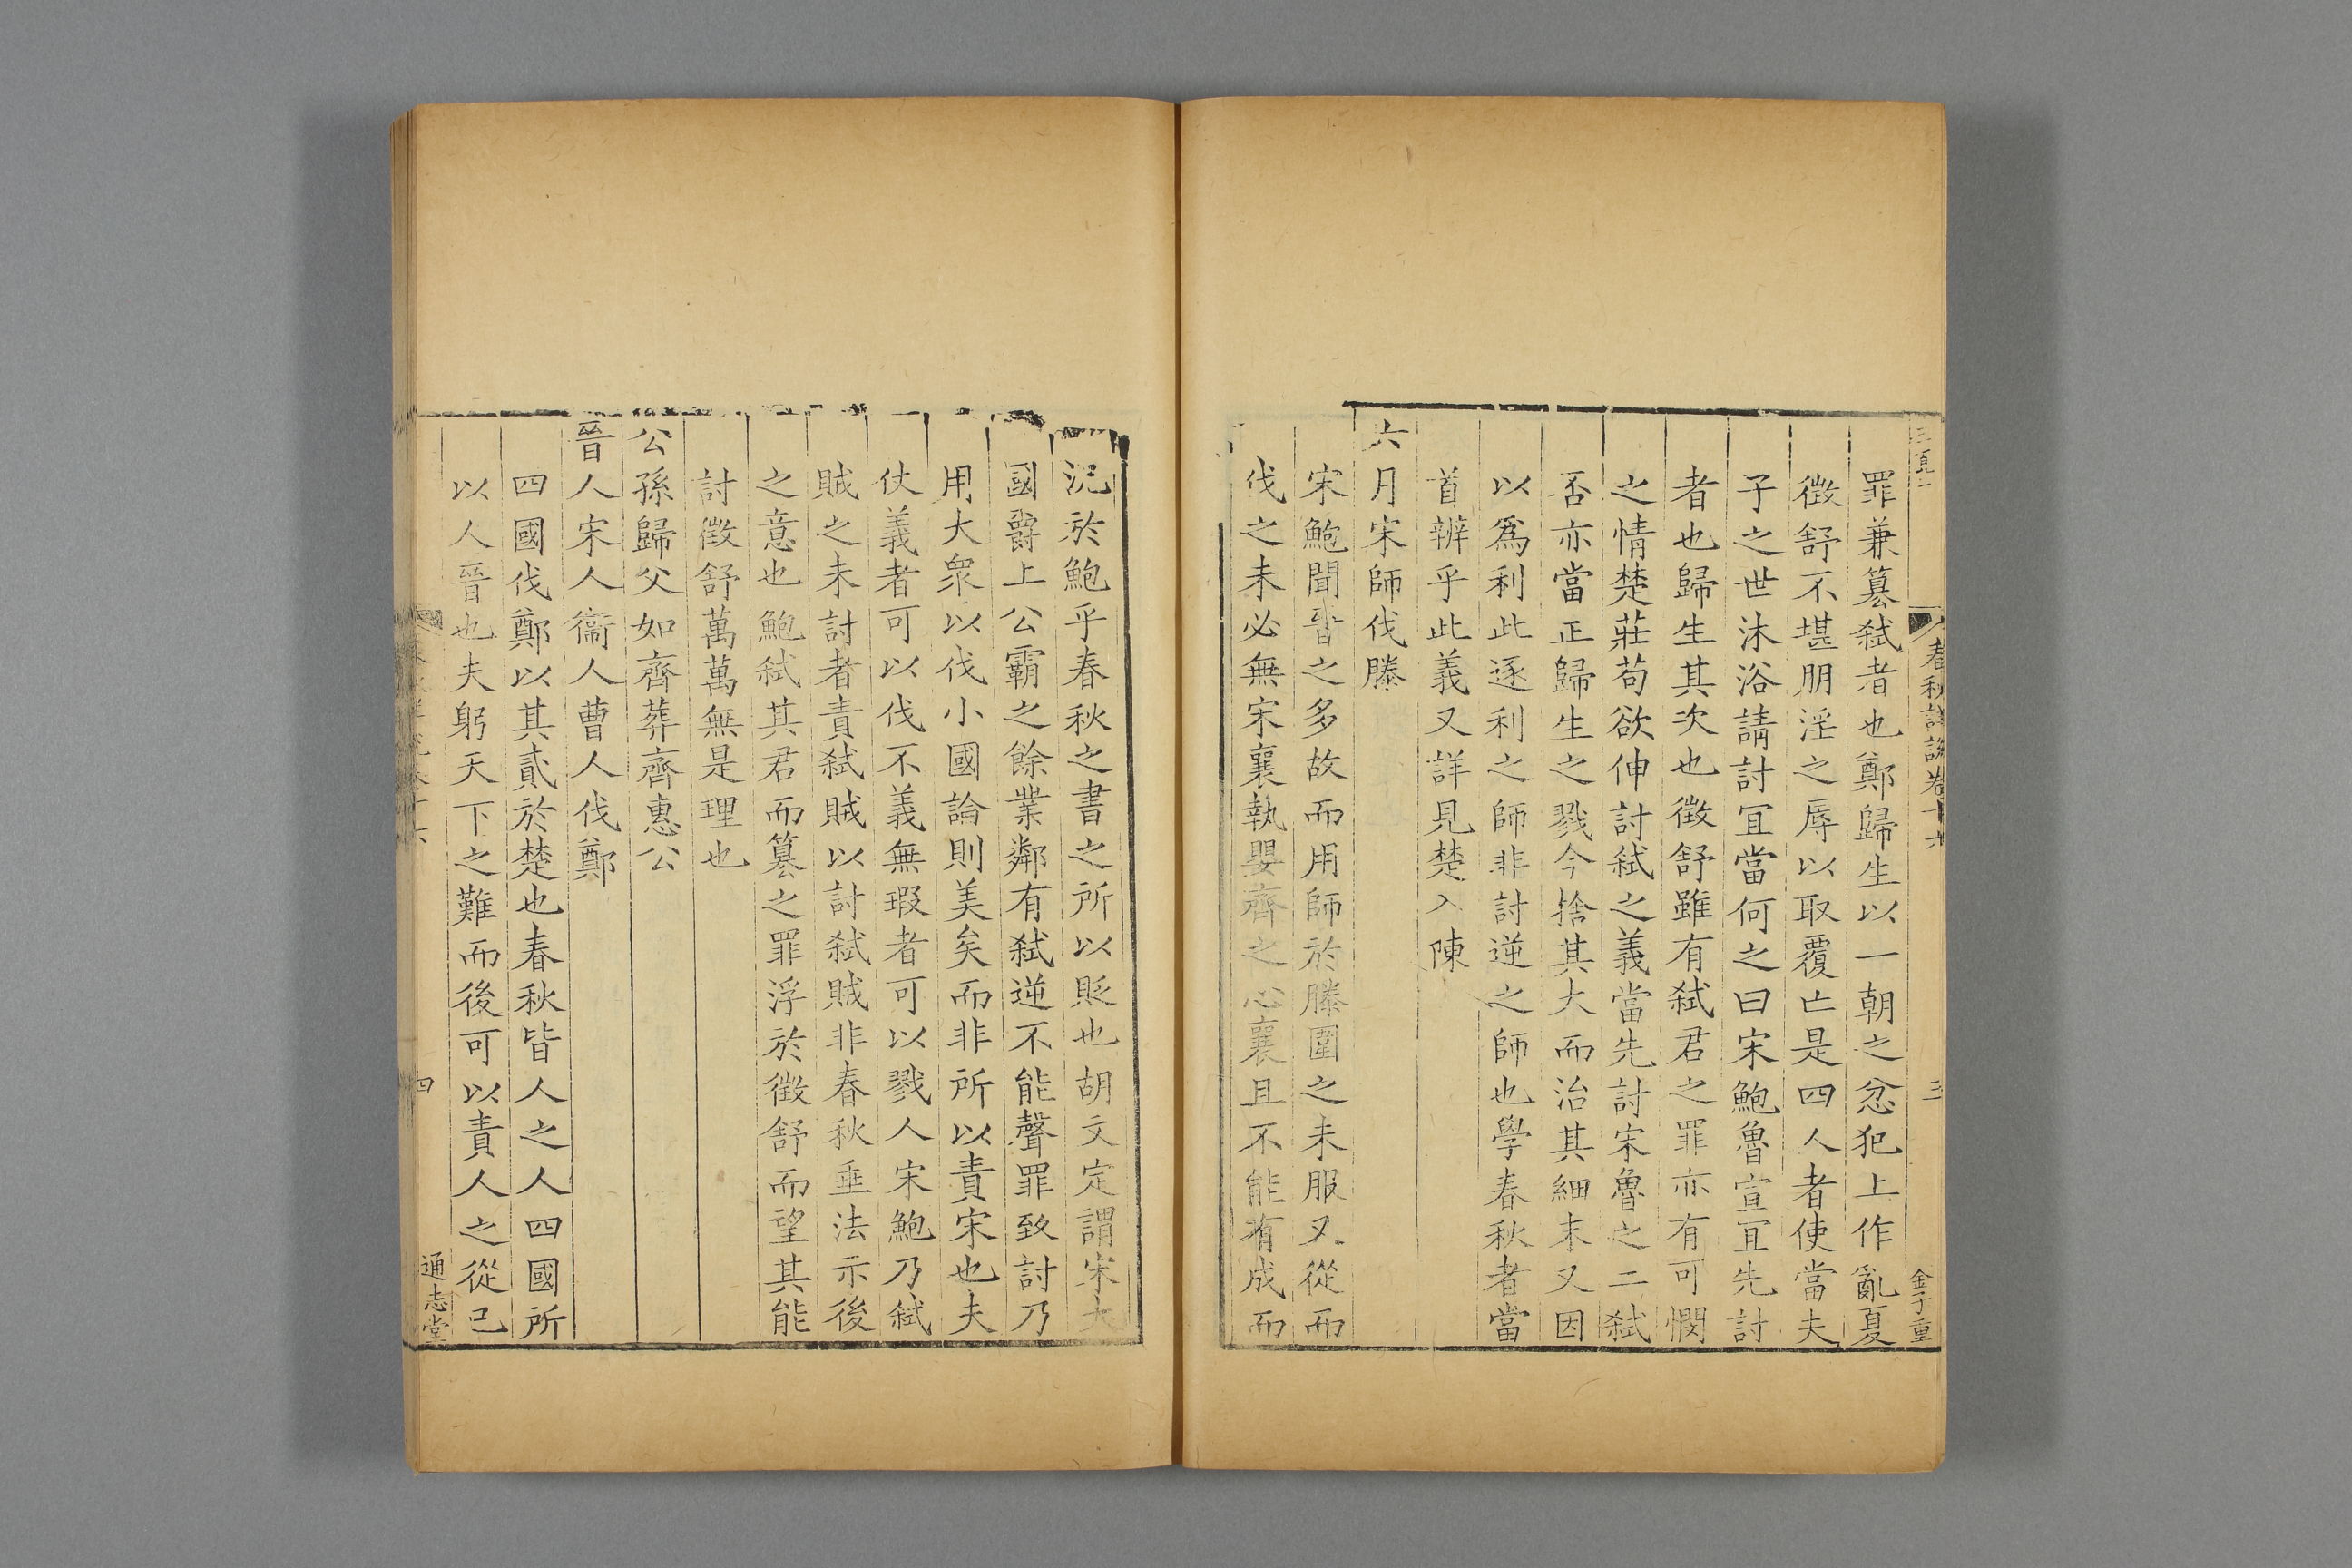 春秋詳說卷十六
三
金子重
罪兼篡弑者也鄭歸生以一朝之忿犯上作亂夏
徵舒不堪朋淫之辱以取覆亡是四人者使當夫
子之世沐浴請討宜當何之曰宋鮑魯宣宜先討
者也歸生其次也徵舒雖有弑君之罪亦有可憫
之情楚莊苟欲伸討弑之義當先討宋魯之二弑
否亦當正歸生之戮今捨其大而治其細末又因
以爲利此逐利之師非討逆之師也學春秋者當
首辨乎此義又詳見楚入陳
六月宋師伐滕
宋鮑聞晉之多故而用師於滕圍之未服又從而
伐之未必無宋襄執嬰齊之心襄且不能有成而
況於鮑乎春秋之書之所以貶也胡文定謂宋大
國爵上公霸之餘業鄰有弑逆不能聲罪致討乃
用大衆以伐小國論則美矣而非所以責宋也夫
仗義者可以伐不義無瑕者可以戮人宋鮑乃弑
賊之未討者責弑賊以討弑賊非春秋垂法示後
之意也鮑弑其君而篡之罪浮於徵舒而望其能
討徵舒萬萬無是理也
公孫歸父如齊葬齊惠公
晉人宋人衞人曹人伐鄭
四國伐鄭以其貳於楚也春秋皆人之人四國所
以人晉也夫躬天下之難而後可以責人之從己
四
通志堂